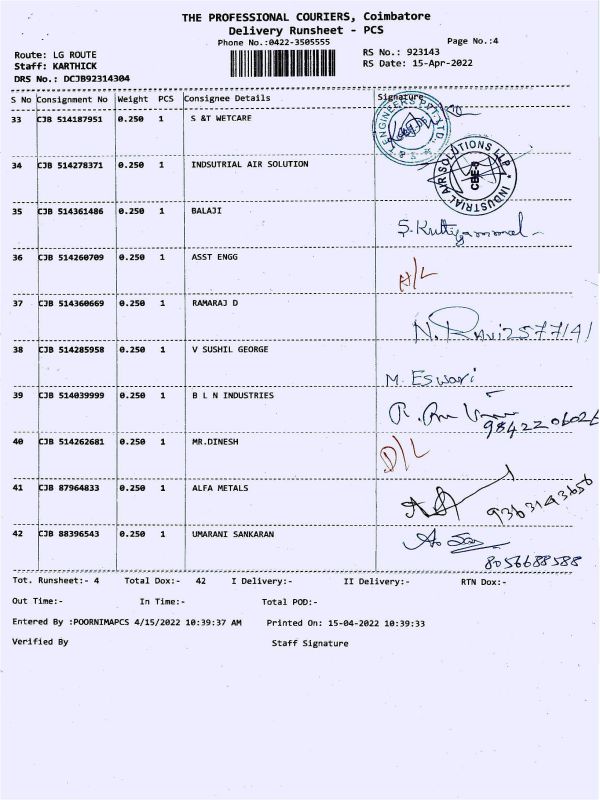 THE PROFESSIONAL COURIERS, Coimbatore
Delivery Runsheet - PCS
Phone No.:0422-3505555
Page No.:4
Route: LG ROUTE
RS No.: 923143
Staff: KARTHICK
RS Date: 15-Apr-2022
DRS No.: DCJB92314304
S No Consignment No Weight PCS Consignee Details Signature
33 CJB 514187951 0.250 1 S &T WETCARE
ENGINEERS PVT LTD.
34 CJB 514278371 0.250 1 INDSUTRIAL AIR SOLUTION
INDUSTRIAL AIR SOLUTIONS LLP
CBE-
35 CJB 514361486 0.250 1 BALAJI
36 CJB 514260709 0.250 1 ASST ENGG
D/L
37 CJB 514360669 0.250 1 RAMARAJ D
N. Ravi 2577141
38 CJB 514285958 0.250 1 V SUSHIL GEORGE
M. Eswari
39 CJB 514039999 0.250 1 B L N INDUSTRIES
40 CJB 514262681 0.250 1 MR.DINESH
D/L
41 CJB 87964833 0.250 1 ALFA METALS
9363143656
42 CJB 88396543 0.250 1 UMARANI SANKARAN
8056688588
Tot. Runsheet:- 4 Total Dox:- 42 I Delivery:- II Delivery:- RTN Dox:-
Out Time:- In Time:- Total POD:-
Entered By :POORNIMAPCS 4/15/2022 10:39:37 AM Printed On: 15-04-2022 10:39:33
Verified By Staff Signature